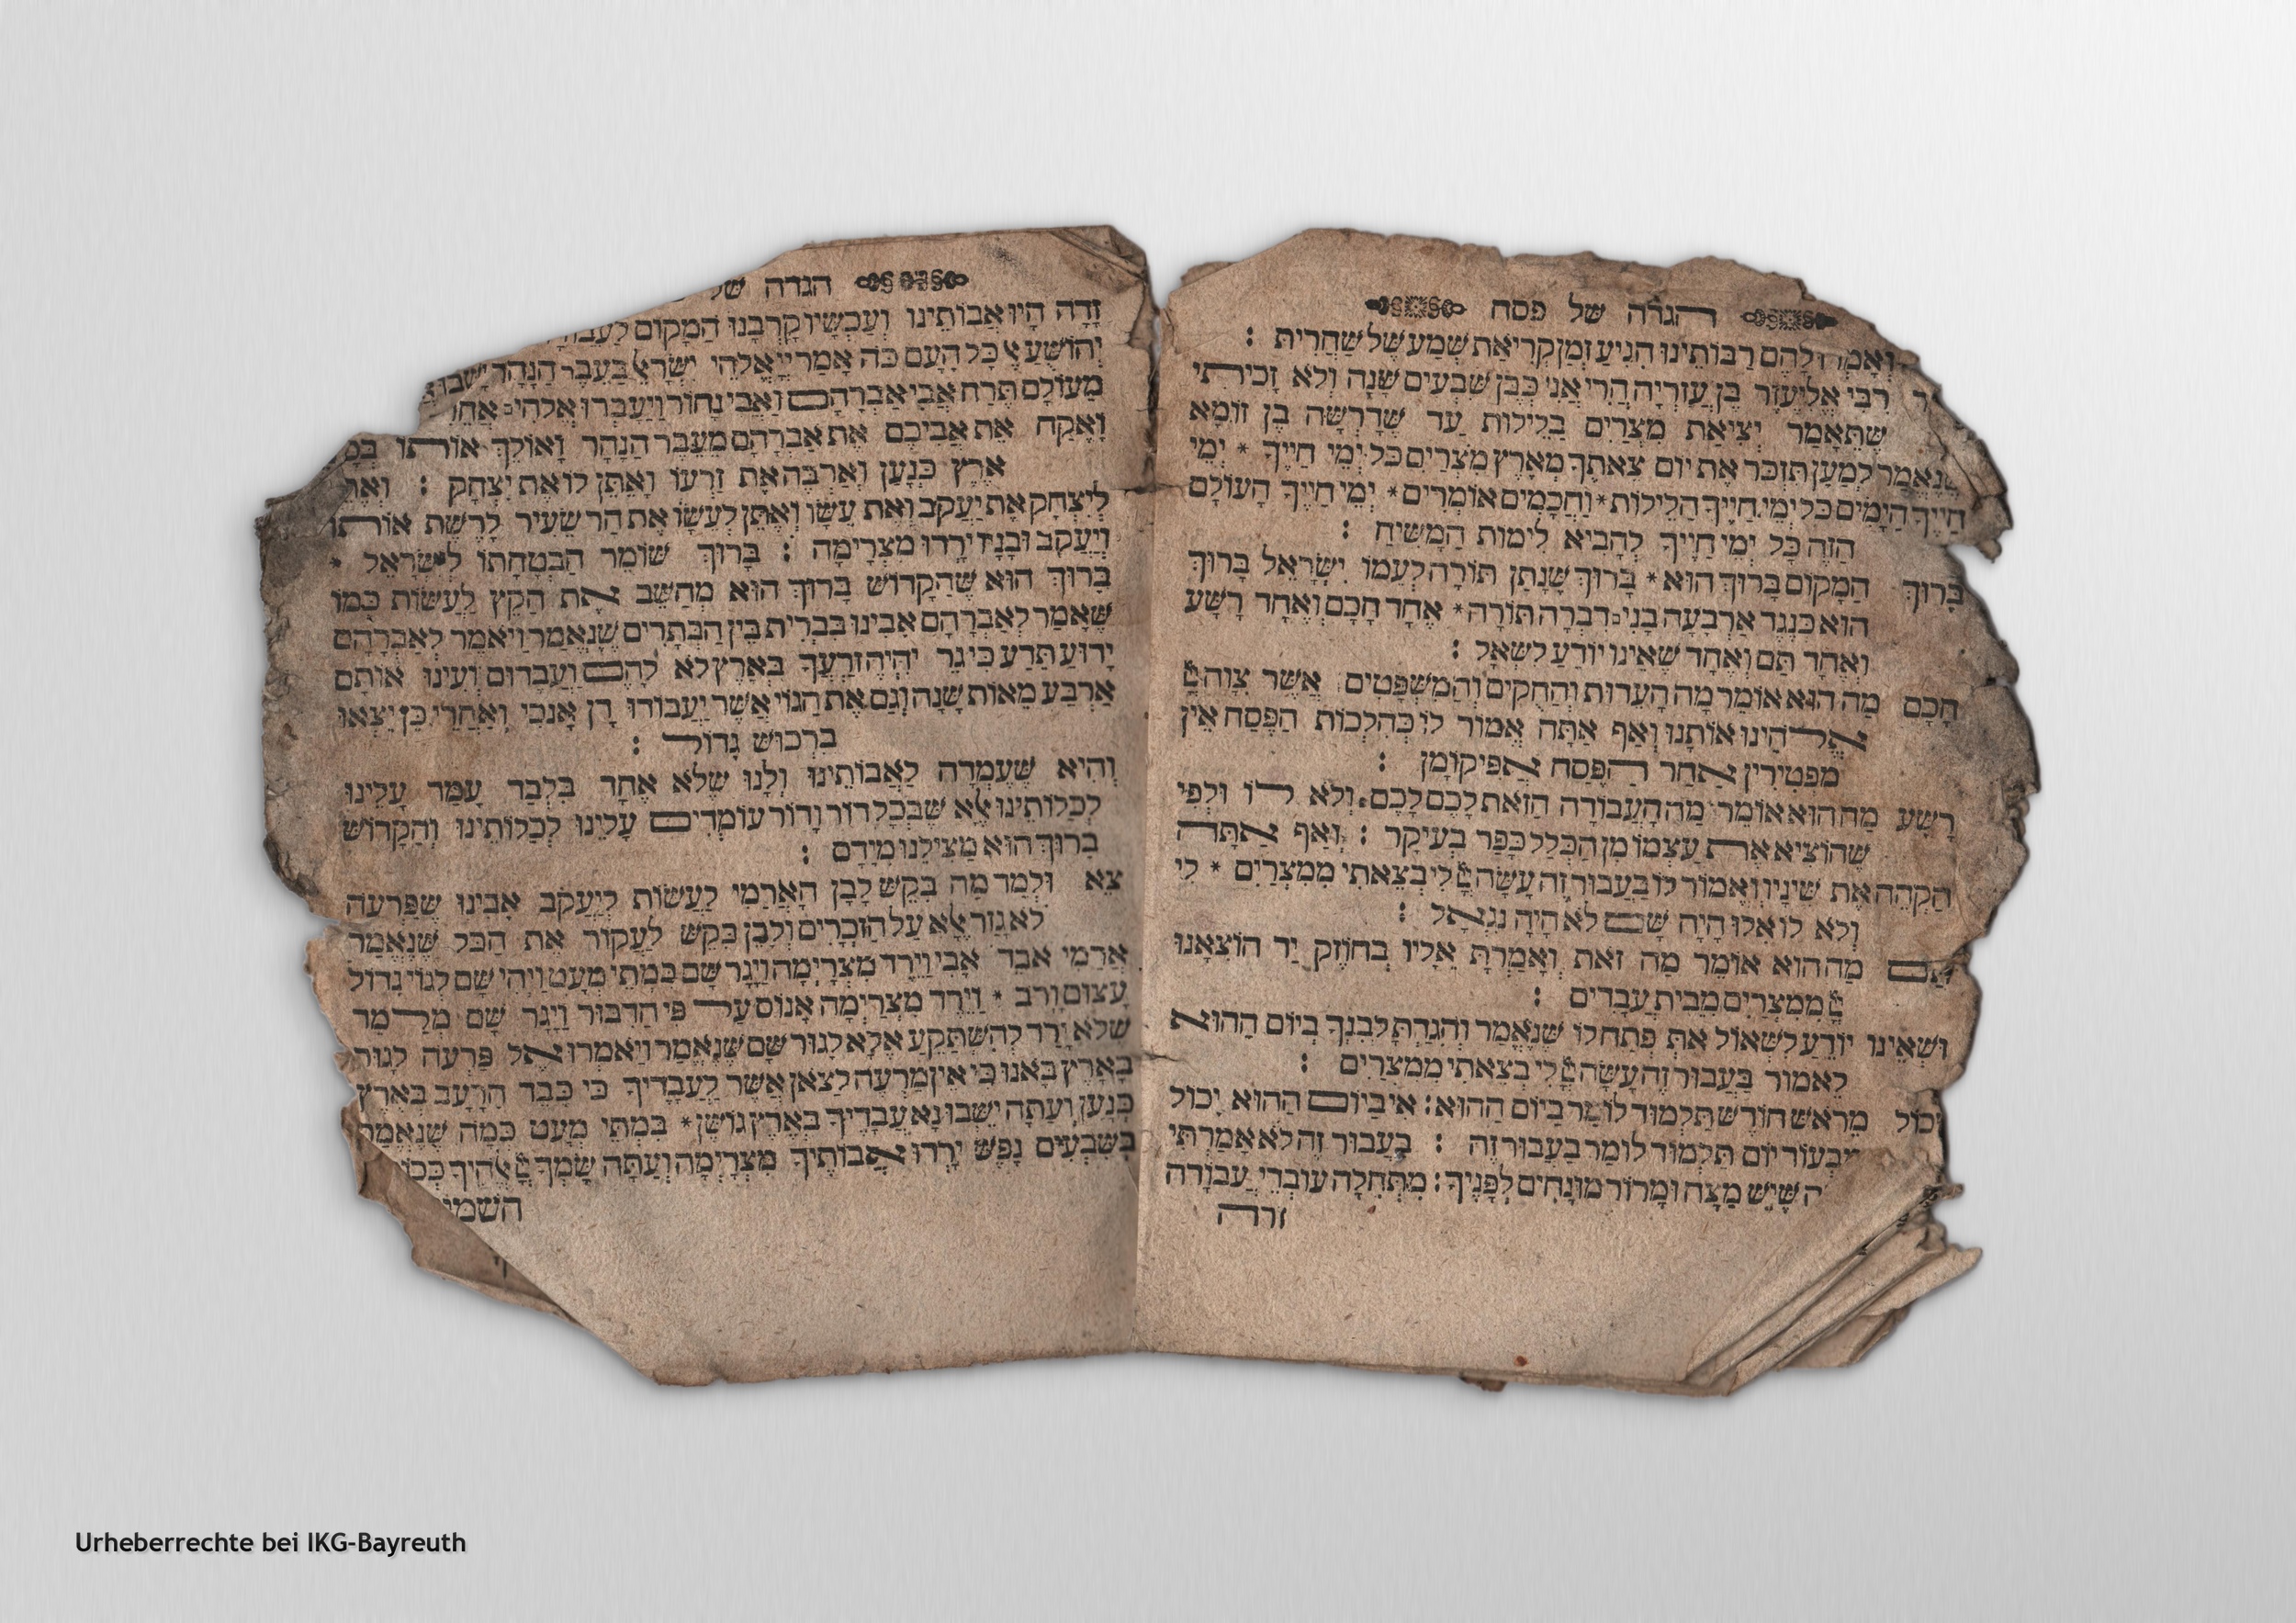 הגדה של פסח
ואמרו להם רבותינו הגיע זמן קריאת שמע של שחרית :
רבי אליעזר בן עזריה הרי אני כבן שבעים שנה ולא זכיתי
שתאמר יציאת מצרים בלילות עד שדרשה בן זומא
שנאמר למען תזכר את יום צאתך מארץ מצרים כל ימי חייך * ימי
חייך הימים כל ימי חייך הלילות * וחכמים אומרים * ימי חייך העולם
הזה כל ימי חייך להביא לימות המשיח :
ברוך המקום ברוך הוא * ברוך שנתן תורה לעמו ישראל ברוך
הוא כנגד ארבעה בני' דברה תורה * אחד חכם ואחד רשע
ואחד תם ואחד שאינו יודע לשאל :
חכם מה הוא אומר מה העדות והחקים והמשפטים אשר צוה
אלהינו אותנו ואף אתה אמור לו כהלכות הפסח אין
מפטירין אחר הפסח אפיקומן :
רשע מה הוא אומר מה העבודה הזאת לכם לכם ולא לו ולפי
שהוציא את עצמו מן הכלל כפר בעיקר : ואף אתה
הקהה את שיניו ואמור לו בעבור זה עשה לי בצאתי ממצרים * לי
ולא לו אלו היה שם לא היה נגאל :
תם מה הוא אומר מה זאת ואמרת אליו בחוזק יד הוציאנו
ממצרים מבית עבדים :
ושאינו יודע לשאול את פתח לו שנאמר והגדת לבנך ביום ההוא
לאמור בעבור זה עשה לי בצאתי ממצרים :
יכול מראש חודש תלמוד לומר ביום ההוא : אי ביום ההוא יכול
מבעוד יום תלמוד לומר בעבור זה : בעבור זה לא אמרתי
שיש מצה ומרור מונחים לפניך : מתחלה עובדי עבודה
זרה
הגדה של
זרה היו אבותינו ועכשיו קרבנו המקום
יהושע אל כל העם כה אמר יי אלהי ישראל בעבר הנהר ישבו
מעולם תרח אבי אברהם ואבי נחור ויעברו אלהי'
ואקח את אביכם את אברהם מעבר הנהר ואולך אותו
ארץ כנען וארבה את זרעו ואתן לו את יצחק :
ליצחק את יעקב ואת עשו ואתן לעשו את הר שעיר לרשת אותו
ויעקב ובניו ירדו מצרימה : ברוך שומר הבטחתו לישראל *
ברוך הוא שהקדוש ברוך הוא מחשב את הקץ לעשות כמו
שאמר לאברהם אבינו בברית בין הבתרים שנאמר ויאמר לאברהם
ידוע תדע כי גר יהיה זרעך בארץ לא להם ועבדום ועינו אותם
ארבע מאות שנה וגם את הגוי אשר יעבודו דן אנכי ואחרי כן יצאו
ברכוש גדול :
והיא שעמדה לאבותינו ולנו שלא אחד בלבד עמד עלינו
לכלותינו אלא שבכל דור ודור עומדים עלינו לכלותינו והקדוש
ברוך הוא מצילנו מידם :
צא ולמד מה בקש לבן הארמי לעשות ליעקב אבינו שפרעה
לא גזר אלא על הזכרים ולבן בקש לעקור את הכל שנאמר
ארמי אבד אבי וירד מצרימה ויגר שם במתי מעט ויהי שם לגוי גדול
עצום ורב * וירד מצרימה אנוס על פי הדבור ויגר שם מלמד
שלא ירד להשתקע אלא לגור שם שנאמר ויאמרו אל פרעה לגור
בארץ באנו כי אין מרעה לצאן אשר לעבדיך כי כבד הרעב בארץ
כנען ועתה ישבו נא עבדיך בארץ גושן * במתי מעט כמה שנאמר
בשבעים נפש ירדו אבותיך מצרימה ועתה שמך אלהיך
Urheberrechte bei IKG-Bayreuth